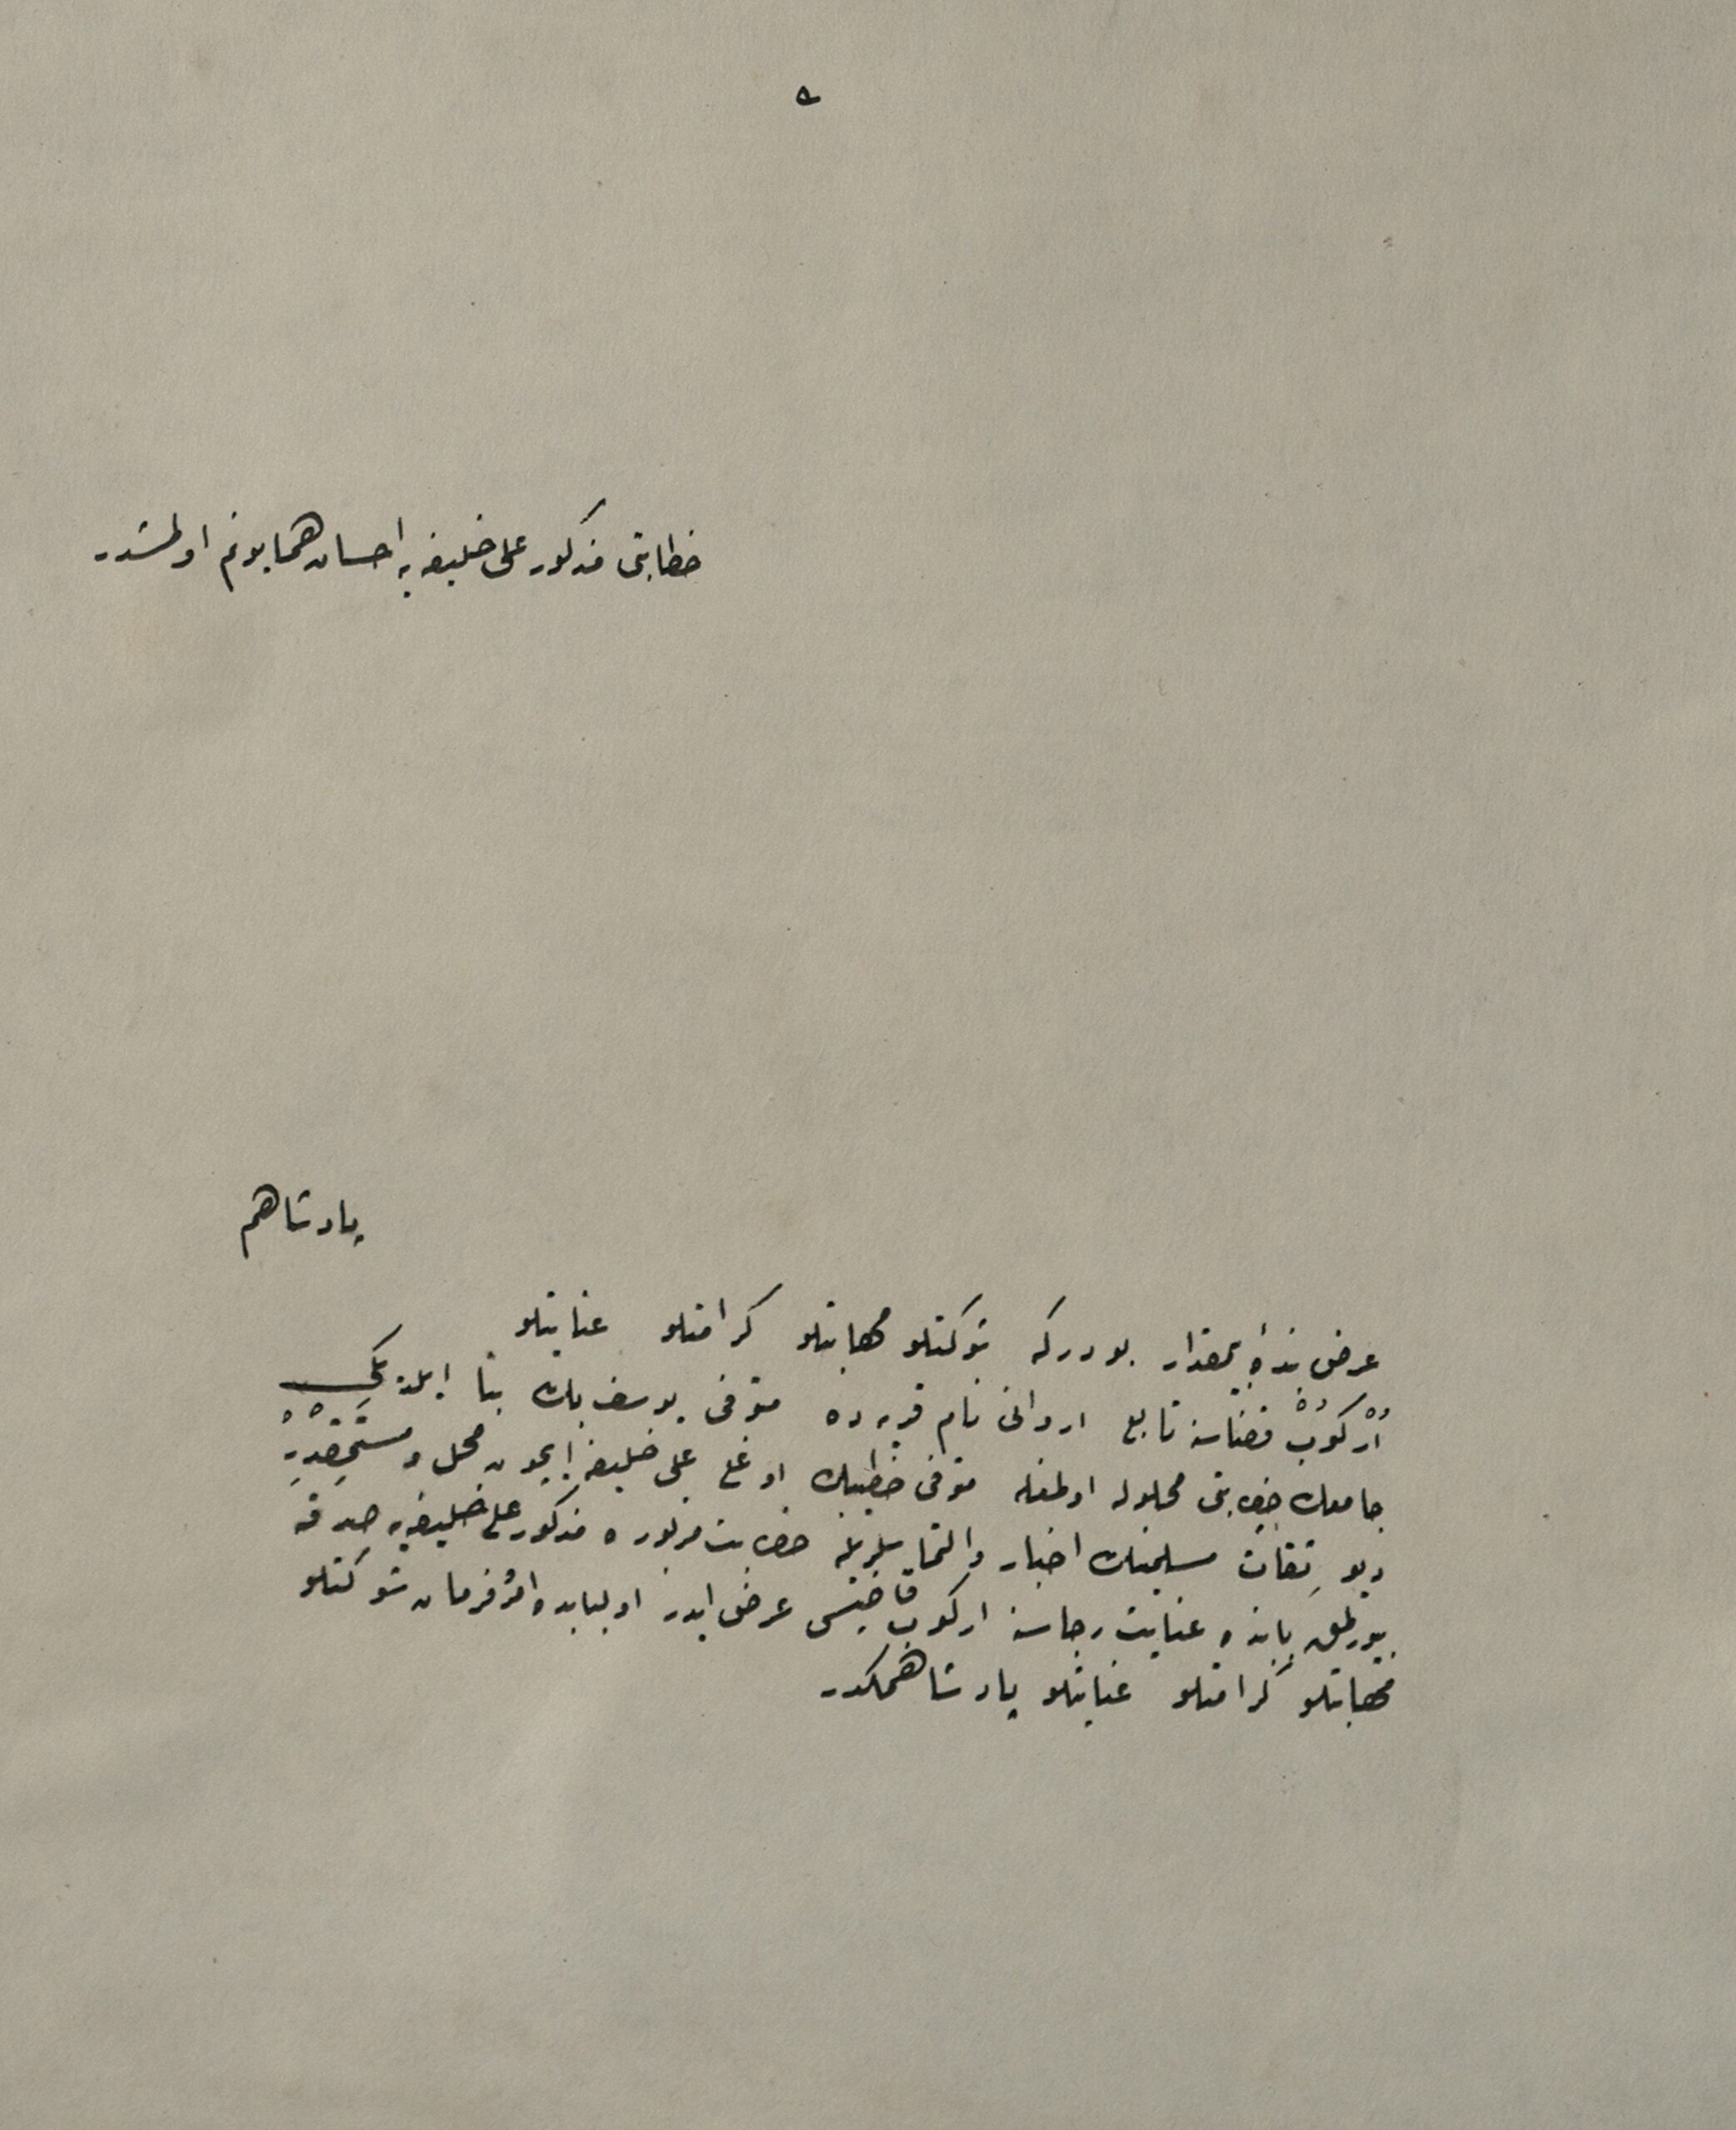 ه
خطابتی مذکور علی خلیفه یه احسان همایونم اولمشدر
پادشاهم
عرض بندهٔ بیمقدار بودرکه شوکتلو مهابتلو کرامتلو عنایتلو
اُرْکُوبْ قضاسنه تابع اروانی نام قریه ده متوفی یوسف بك بنا ایلدیکی
جامعك خطابتی محلوله اولمغله متوفی خطیبك اوغلی علی خلیفه ایچون محل و مستحقدر
دیو ثقات مسلمینك اخبار والتماسلریله خطابت مزبوره مذکور علی خلیفه یه صدقه
بیورلمق بابنده عنایت رجاسنه ارکوب قاضیسی عرض ایدر اولبابده امر و فرمان شوکتلو
مهابتلو کرامتلو عنایتلو پادشاهمکدر